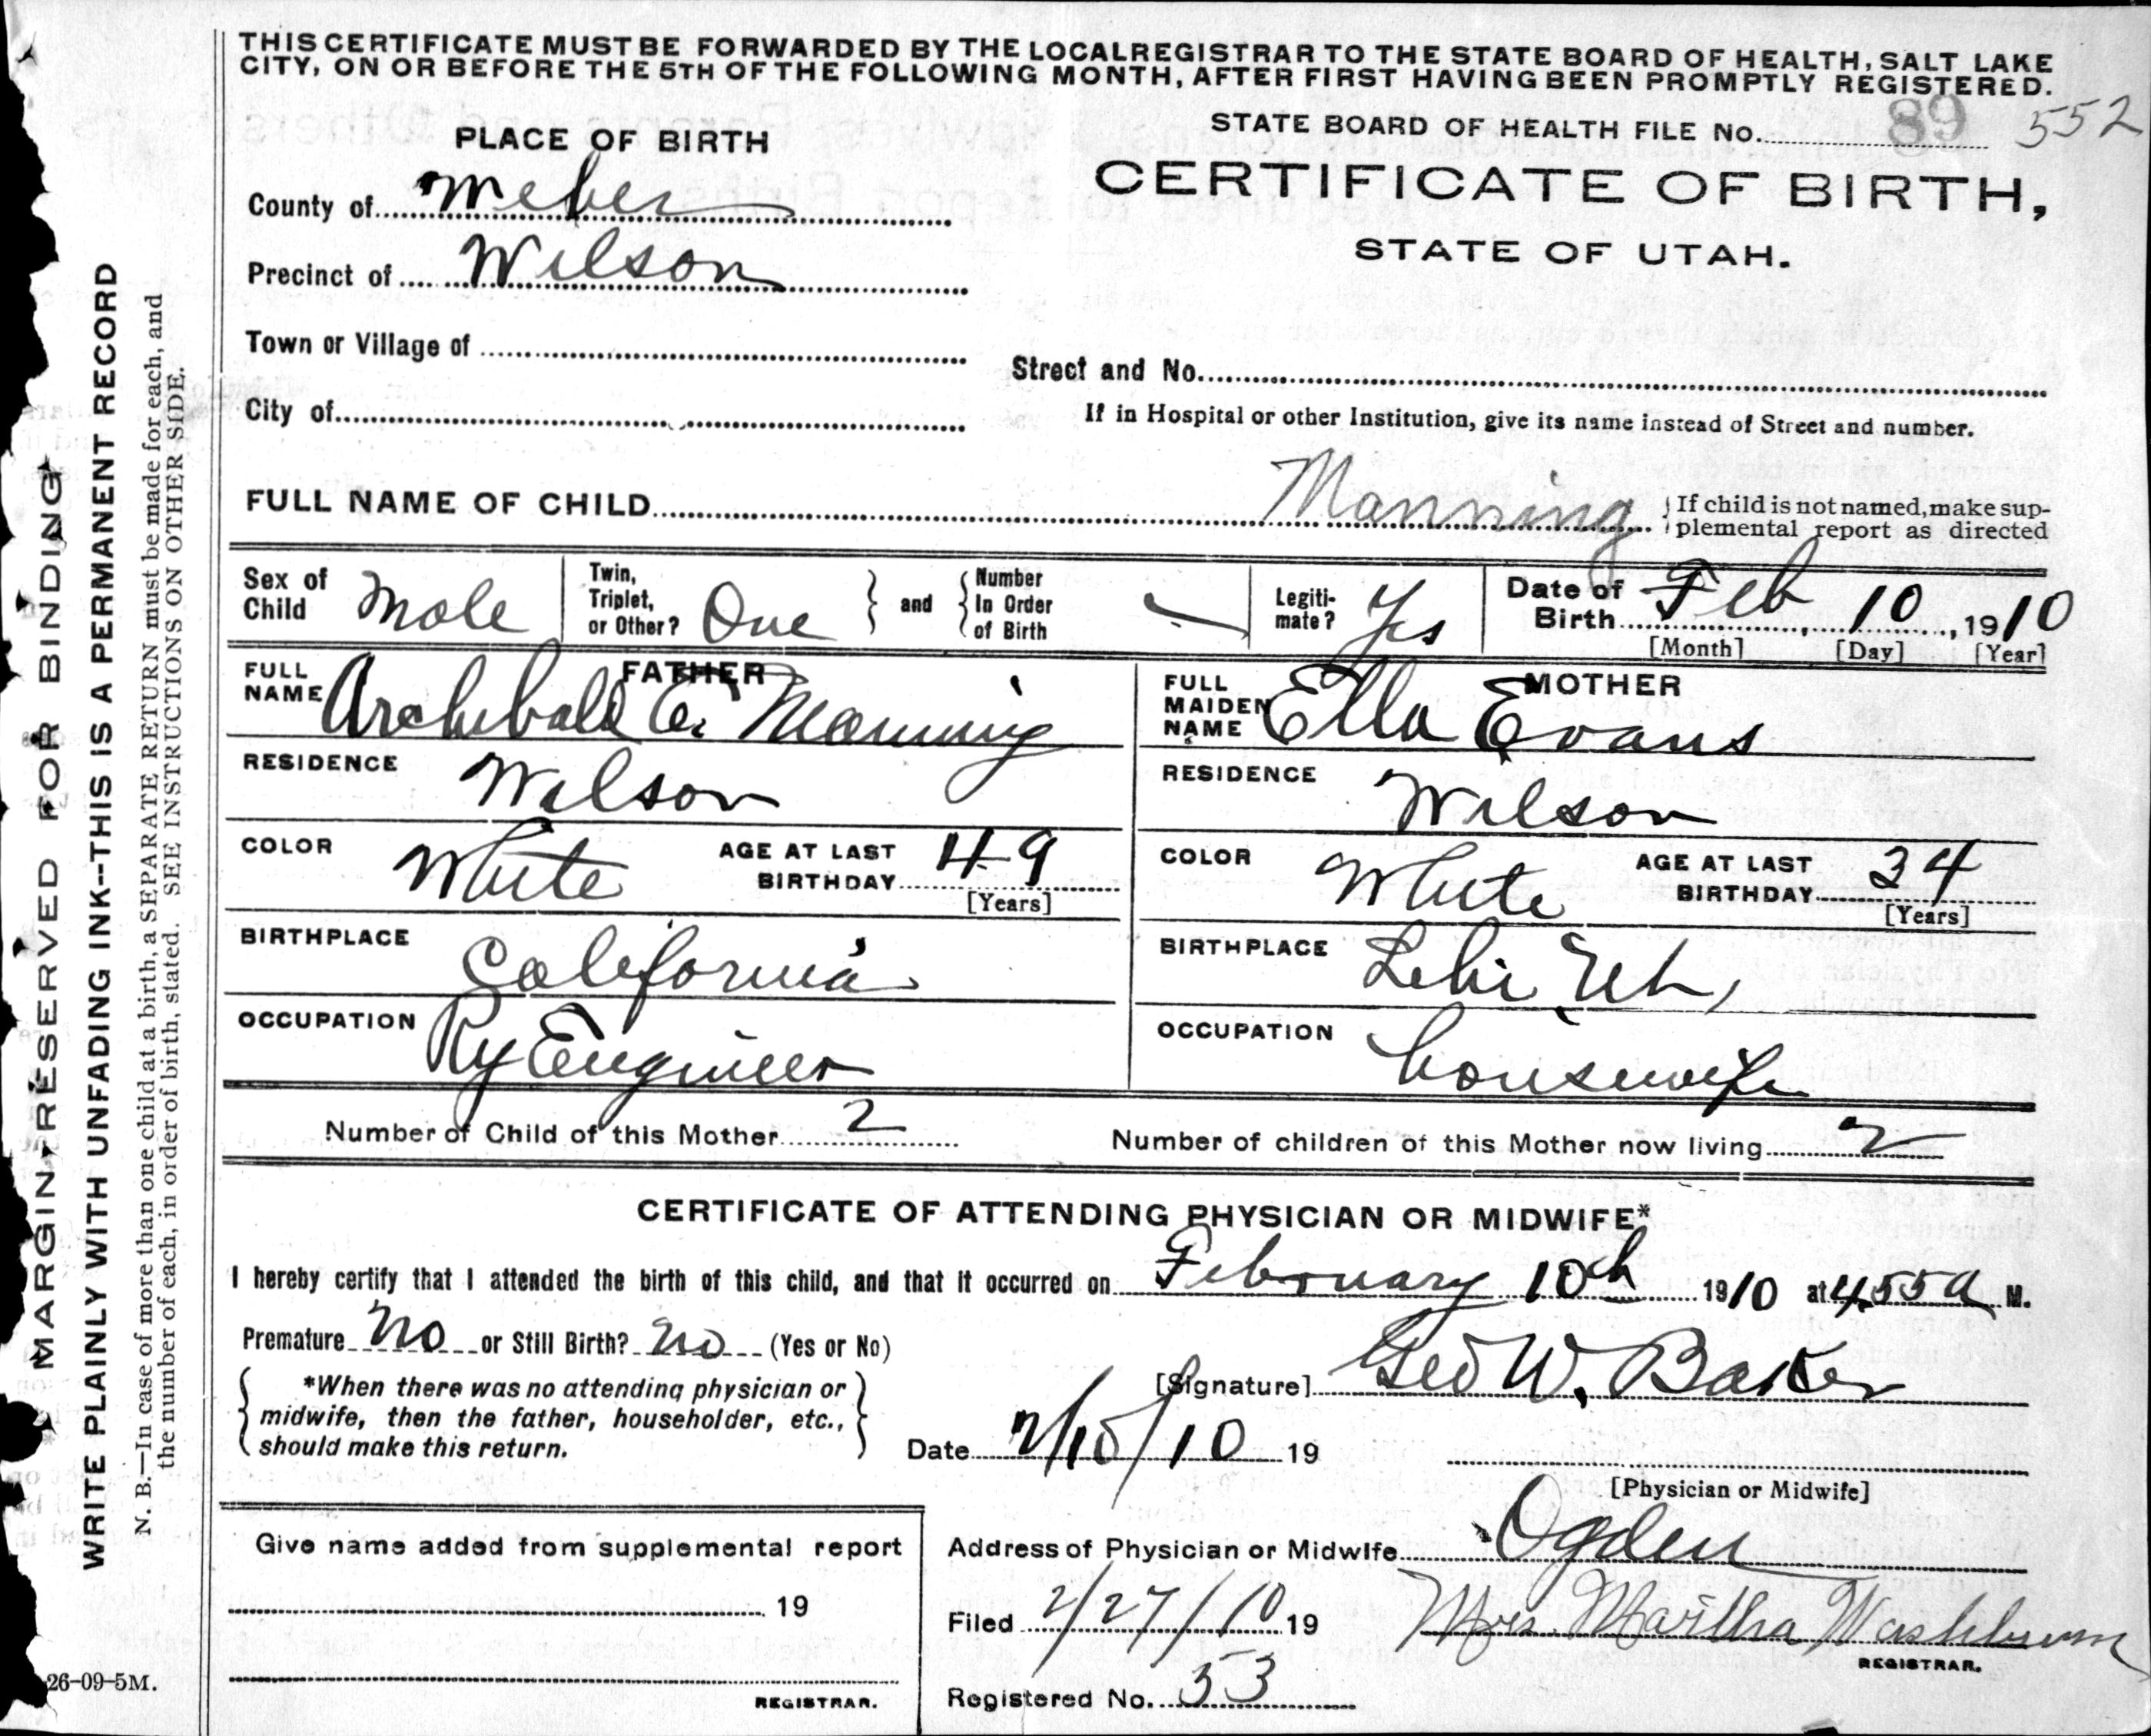 THIS CERTIFICATE MUST BE FORWARDED BY THE LOCAL REGISTRAR TO THE STATE BOARD OF HEALTH, SALT LAKE
CITY, ON OR BEFORE THE 5TH OF THE FOLLOWING MONTH, AFTER FIRST HAVING BEEN PROMPTLY REGISTERED.
STATE BOARD OF HEALTH FILE No. 89 552
PLACE OF BIRTH
CERTIFICATE OF BIRTH,
STATE OF UTAH.
County of Weber
Precinct of Wilson
Town or Village of
Street and No.
City of
If in Hospital or other Institution, give its name instead of Street and number.
FULL NAME OF CHILD Manning { If child is not named, make sup-
plemental report as directed
Sex of Child Male
Twin, Triplet, or Other? One } and { Number In Order of Birth
Legiti-mate? Yes
Date of Birth Feb 10, 1910
[Month] [Day] [Year]
FATHER
FULL NAME Archibald E. Manning
MOTHER
FULL MAIDEN NAME Ella Evans
RESIDENCE Wilson
RESIDENCE Wilson
COLOR White AGE AT LAST BIRTHDAY 49 [Years]
COLOR White AGE AT LAST BIRTHDAY 34 [Years]
BIRTHPLACE California
BIRTHPLACE Lehi Ut,
OCCUPATION Ry Engineer
OCCUPATION housewife
Number of Child of this Mother 2
Number of children of this Mother now living 2
CERTIFICATE OF ATTENDING PHYSICIAN OR MIDWIFE*
I hereby certify that I attended the birth of this child, and that it occurred on February 10th 1910 at 4.55 a M.
Premature No or Still Birth? no (Yes or No)
{ *When there was no attending physician or
midwife, then the father, householder, etc.,
should make this return. }
[Signature] Geo W. Baker
Date 2/10/10 19
[Physician or Midwife]
Give name added from supplemental report
19
REGISTRAR.
Address of Physician or Midwife Ogden
Filed 2/27/10 19 Mrs. Martha Washburn
REGISTRAR.
Registered No. 53
26-09-5M.
MARGIN RESERVED FOR BINDING
WRITE PLAINLY WITH UNFADING INK--THIS IS A PERMANENT RECORD
N. B.—In case of more than one child at a birth, a SEPARATE RETURN must be made for each, and
the number of each, in order of birth, stated. SEE INSTRUCTIONS ON OTHER SIDE.